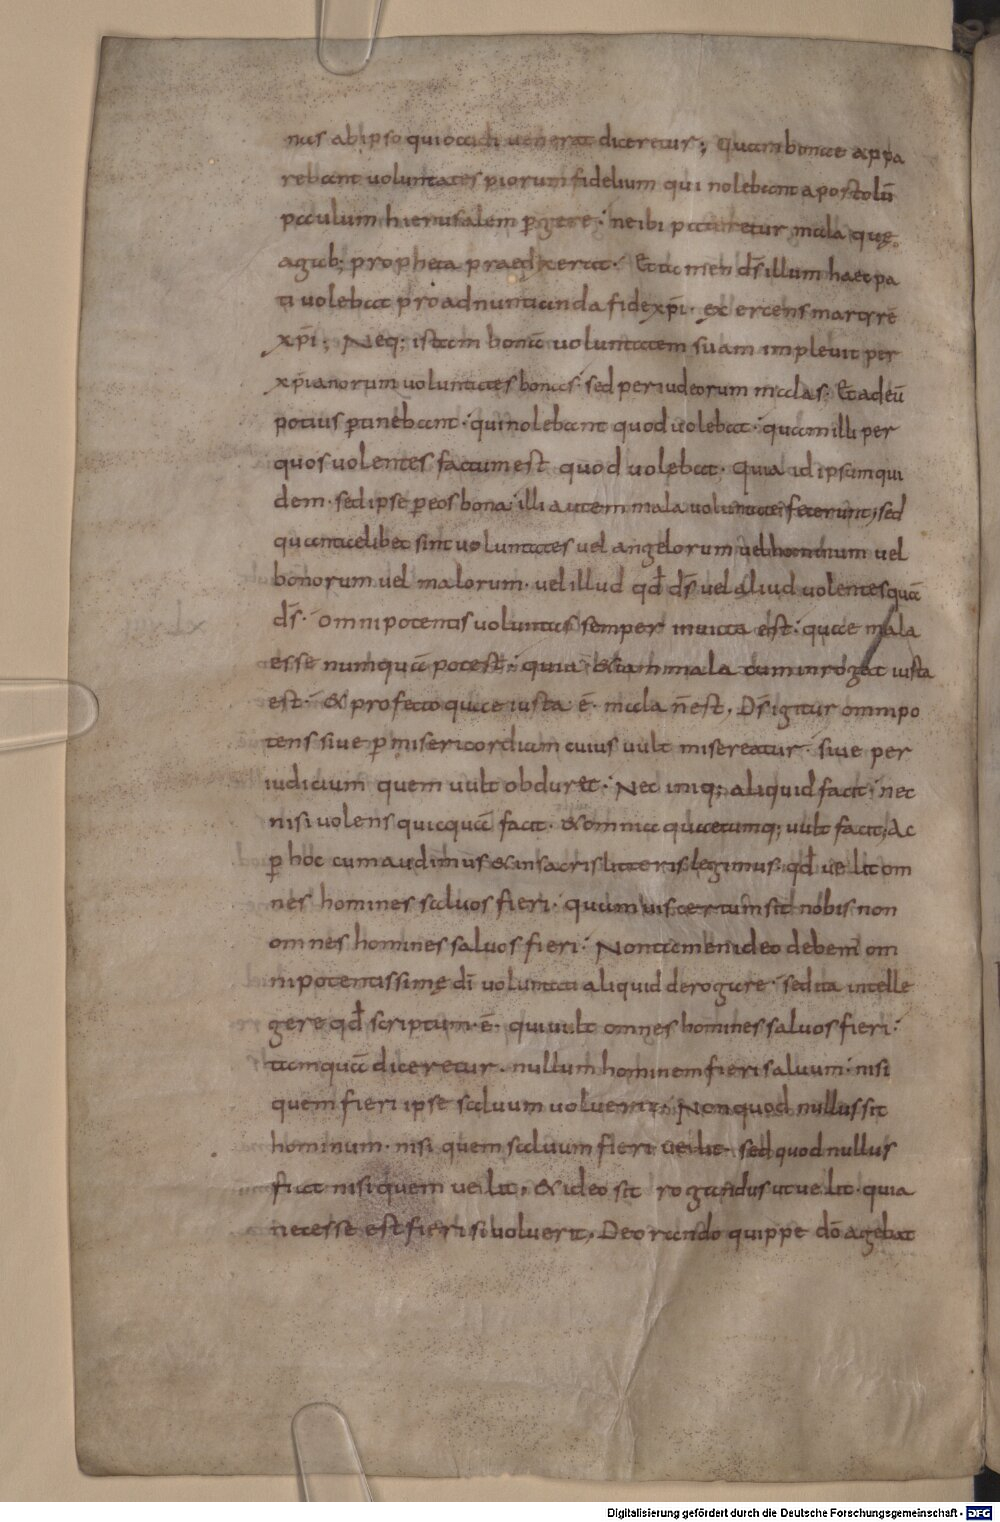 nus ab ipso qui occidi uenerat diceretur; Quam bonae appa
rebant uoluntates piorum fidelium qui nolebant apostolū
paulum hierusalem ꝑgere· ne ibi pateretur mala quę
agab; propheta praedixerat· Et tamen d̄s illum haec pa
ti uolebat pro adnuntianda fide xp̄i· exercens martyrē
xp̄i; Neq; istam bonā uoluntatem suam impleuit per
xp̄ianorum uoluntates bonas· sed per iudeorum malas· Et ad eū
potius ꝑtinebant· qui nolebant quod uolebat· quam illi per
quos uolentes factum est quod uolebat· Quia id ipsum qui
dem· sed ipse ꝑ eos bona· illi autem mala uoluntate fecerunt; sed
quantaelibet sint uoluntates uel angelorum uel hominum uel
bonorum uel malorum· uel illud qd̄ d̄s uel aliud uolentes quā
d̄s· omnipotentis uoluntas semper inuicta est· quae mala
esse numquā potest· quia etiam mala cum inrogat iusta
est· & profecto quae iusta ē· mala n̄ est, D̄s igitur omnipo
tens siue ꝑ misericordiam cuius uult misereatur· siue per
iudicium quem uult obduret· Nec iniq; aliquid facit· nec
nisi uolens quicquā facit· & omnia quaecumq; uult facit; Ac
ꝑ hoc cum audimus & in sacris litteris legimus· qd̄ uelit om
nes homines saluos fieri· quamuis certum sit nobis non
omnes homines saluos fieri· Non tamen ideo debem̄ om
nipotentissimę d̄i uoluntati aliquid derogare· sed ita intelle
gere qd̄ scriptum· ē· qui uult omnes homines saluos fieri·
tamquā diceretur· nullum hominem fieri saluum· nisi
quem fieri ipse saluum uoluerit· Non quod nullus sit
hominum· nisi quem saluum fieri uelit· sed quod nullus
fiat nisi quem uelit, & ideo sit rogandus ut uelit· quia
necesse est fieri si uoluerit, De orando quippe dō agebat
Digitalisierung gefördert durch die Deutsche Forschungsgemeinschaft - DFG